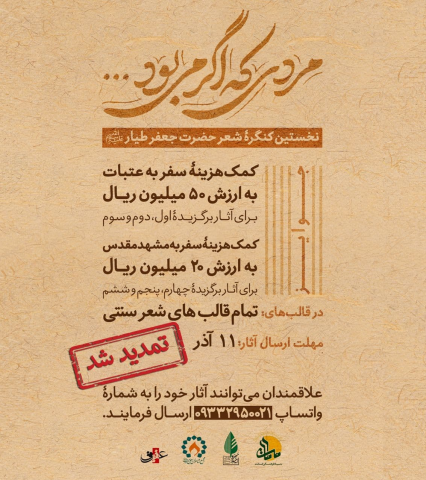 مردی که اگر می‌بود...
نخستین کنگرهٔ شعر حضرت جعفر طیار
جوایز
کمک‌هزینهٔ سفر به عتبات
به ارزش ۵۰ میلیون ریال
برای آثار برگزیدهٔ اول، دوم و سوم
کمک‌هزینهٔ سفر به مشهد مقدس
به ارزش ۲۰ میلیون ریال
برای آثار برگزیدهٔ چهارم، پنجم و ششم
در قالب‌های: تمام قالب های شعر سنتی
مهلت ارسال آثار: ۱۱ آذر
تمدید شد
علاقمندان می‌توانند آثار خود را به شمارهٔ
واتساپ ۰۹۳۳۲۹۵۰۰۲۱ ارسال فرمایند.